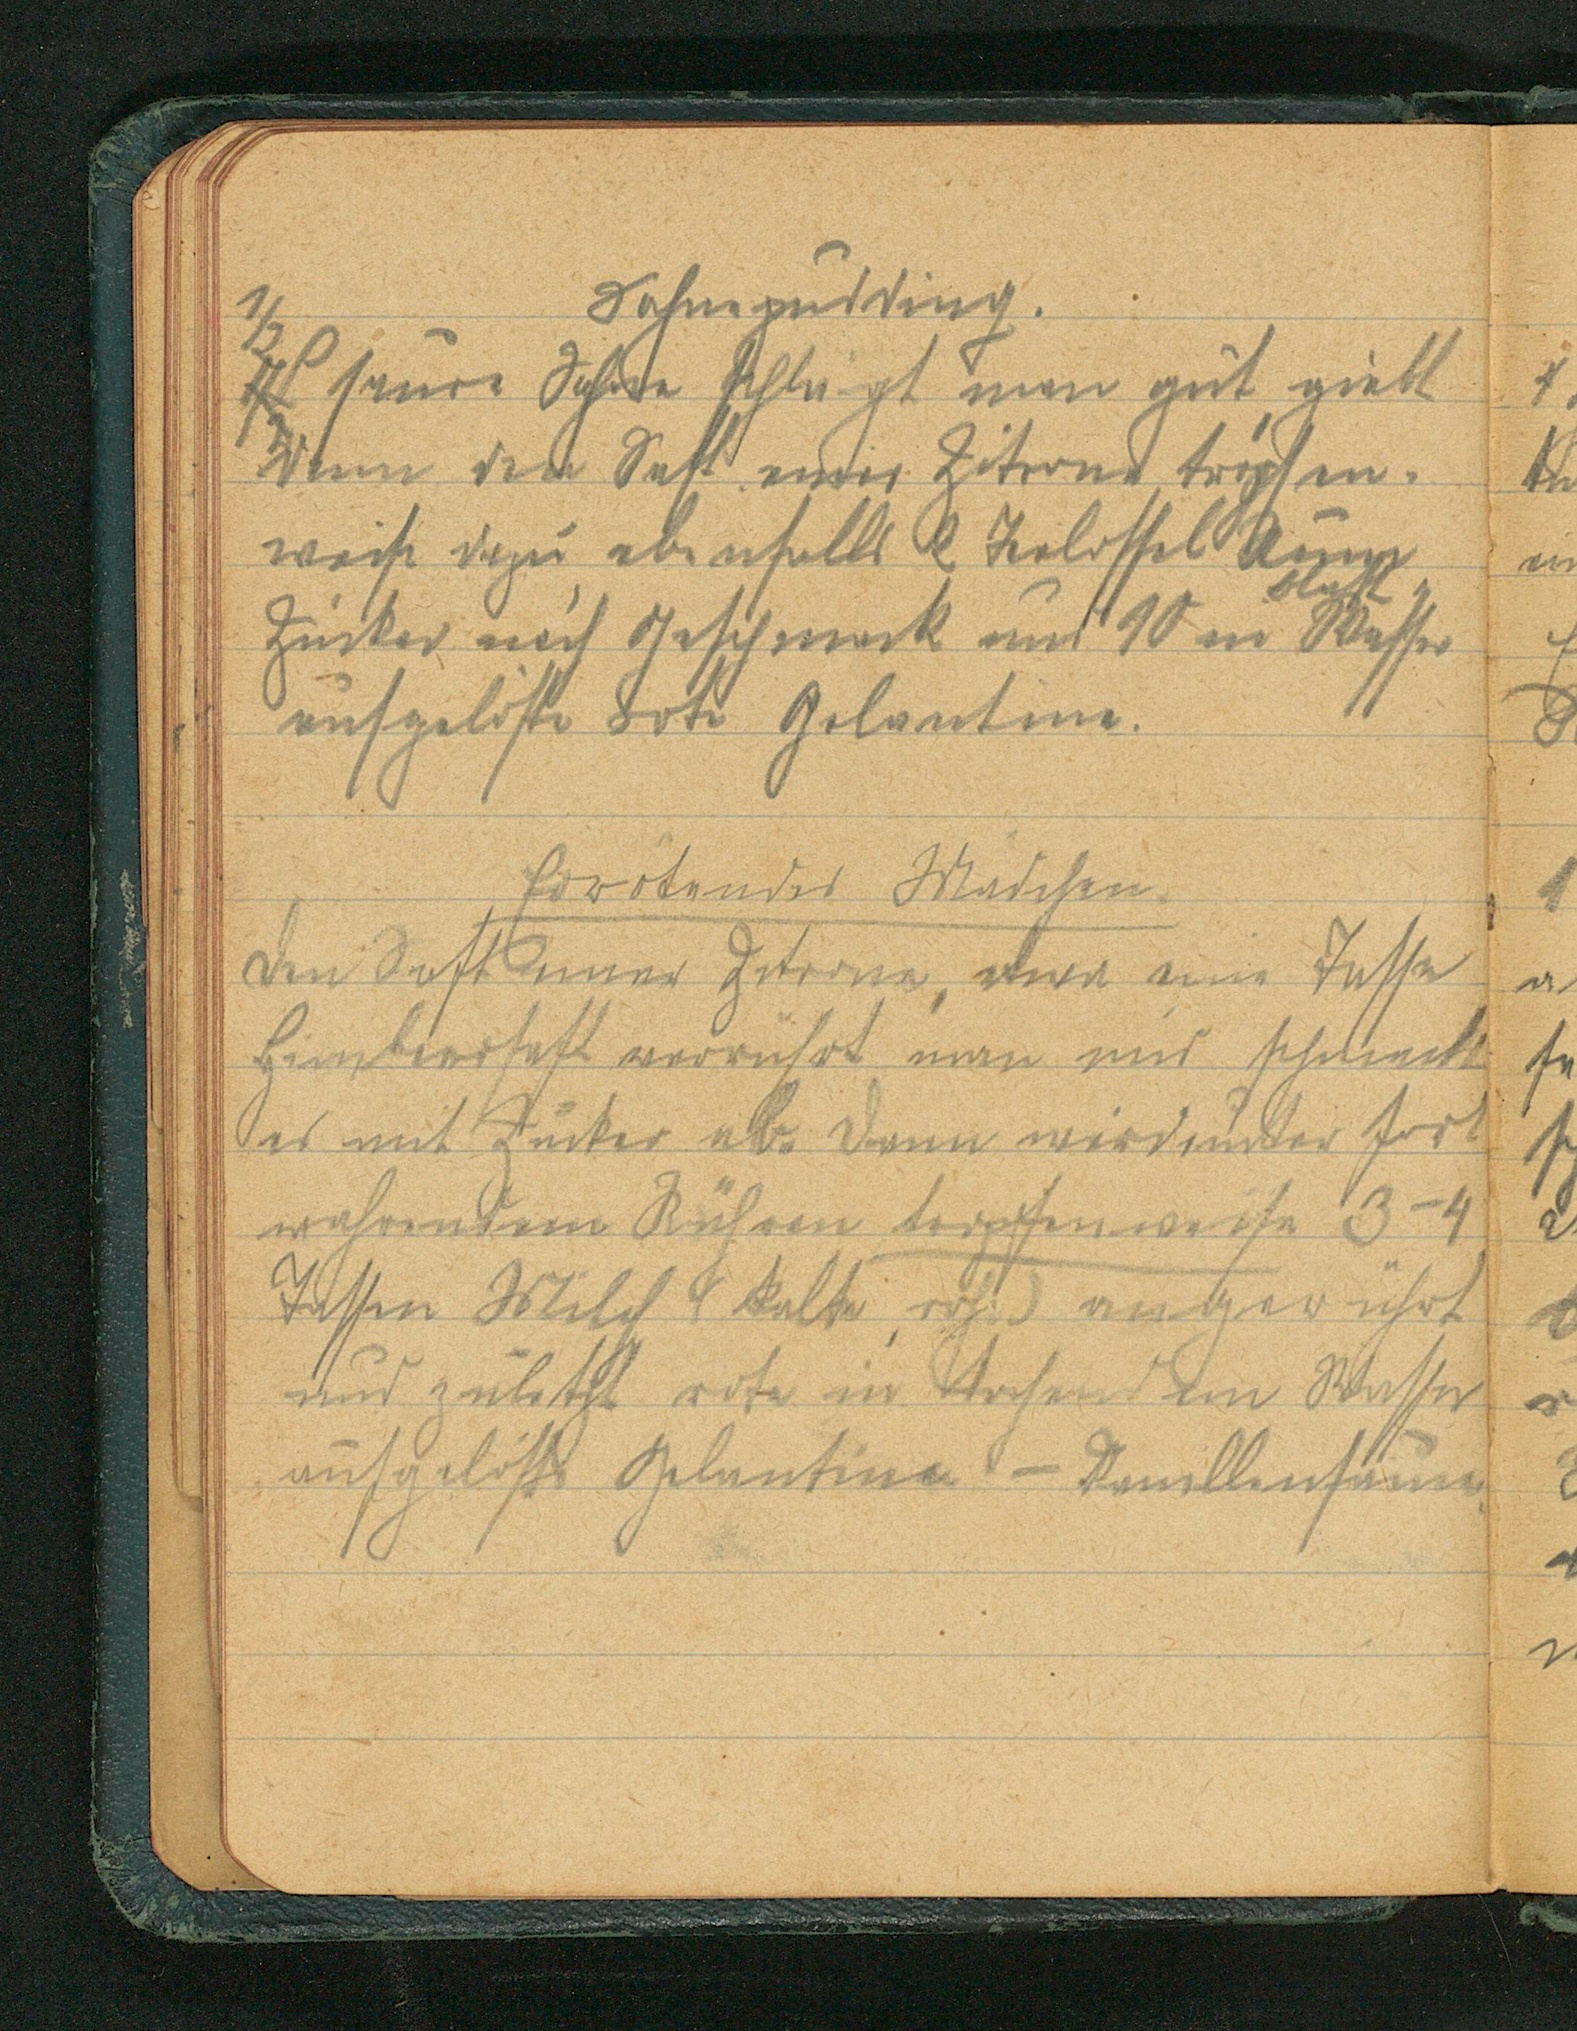 Sahnepudding.
1/2 l saure Sahne schlägt man gut, giebt
dann den Saft einer Zitrone tropfen-
weise dazu ebenfalls 2 Teelössel Rum,
Zucker nach Geschmack und 10 blatt in Wasser
aufgelöste rote Gelantine.
Errötendes Mädchen.
Den Saft einer Zitrone, etwa eine Tasse
Himbeersaft verrührt man und schmeckt
es mit Zucker ab. Dann wird unter fort
währendem Rühren tropfenweise 3-4
Tassen Milch (kalte, rohe) angerührt
und zuletzt rote in kochendem Wasser
aufgelöste Gelantine - Vanillensauce.